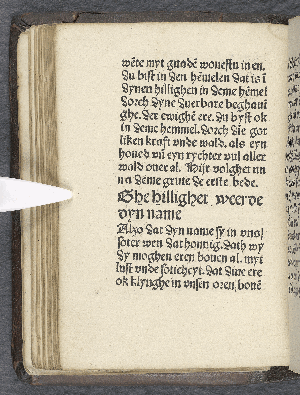 wēte myt gnadē wonestu in en.
du bist in den hēmelen dat is ī
dynen hillighen in deme hēmel
dorch dyne
ghe. der ewighē ere. du byst ok
in deme hemmel. dorch die got
liken kraft vnde wald. als eyn
houed vñ eyn rychter vul aller
wald ouer al. Hijr volghet nu
na deme grute de erste bede.
Ghehillighet weerde
dyn name
Also dat dyn name sy in vns
soter wen dat honnig. dath wy
dy moghen eren bouen al. myt
lust vnde soticheyt. dat dine ere
ok klynghe in vnsen oren, bouē